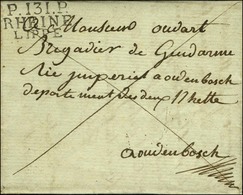 P.131.P.
RHEINE
LIPPE
Monsieur oudart
Brigadier de Gendarme
rie imperial a oudenbosch
departement des deux Nhette
a oudenbosch